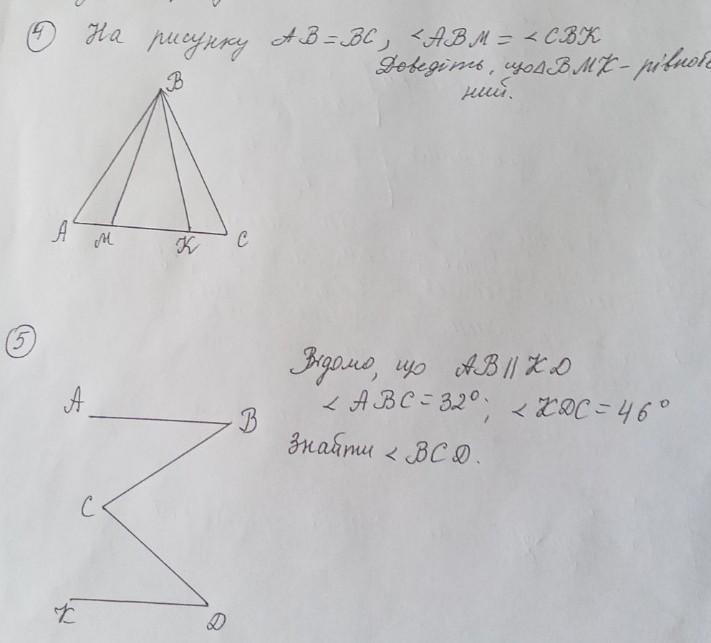 4 На рисунку AB = BC, ∠ABM = ∠CBK
Доведіть, що ΔBMK - рівнобе
ний.
B
A M K C
5
Відомо, що AB || KD
∠ABC = 32°; ∠KDC = 46°
Знайти ∠BCD.
A
B
C
K
D